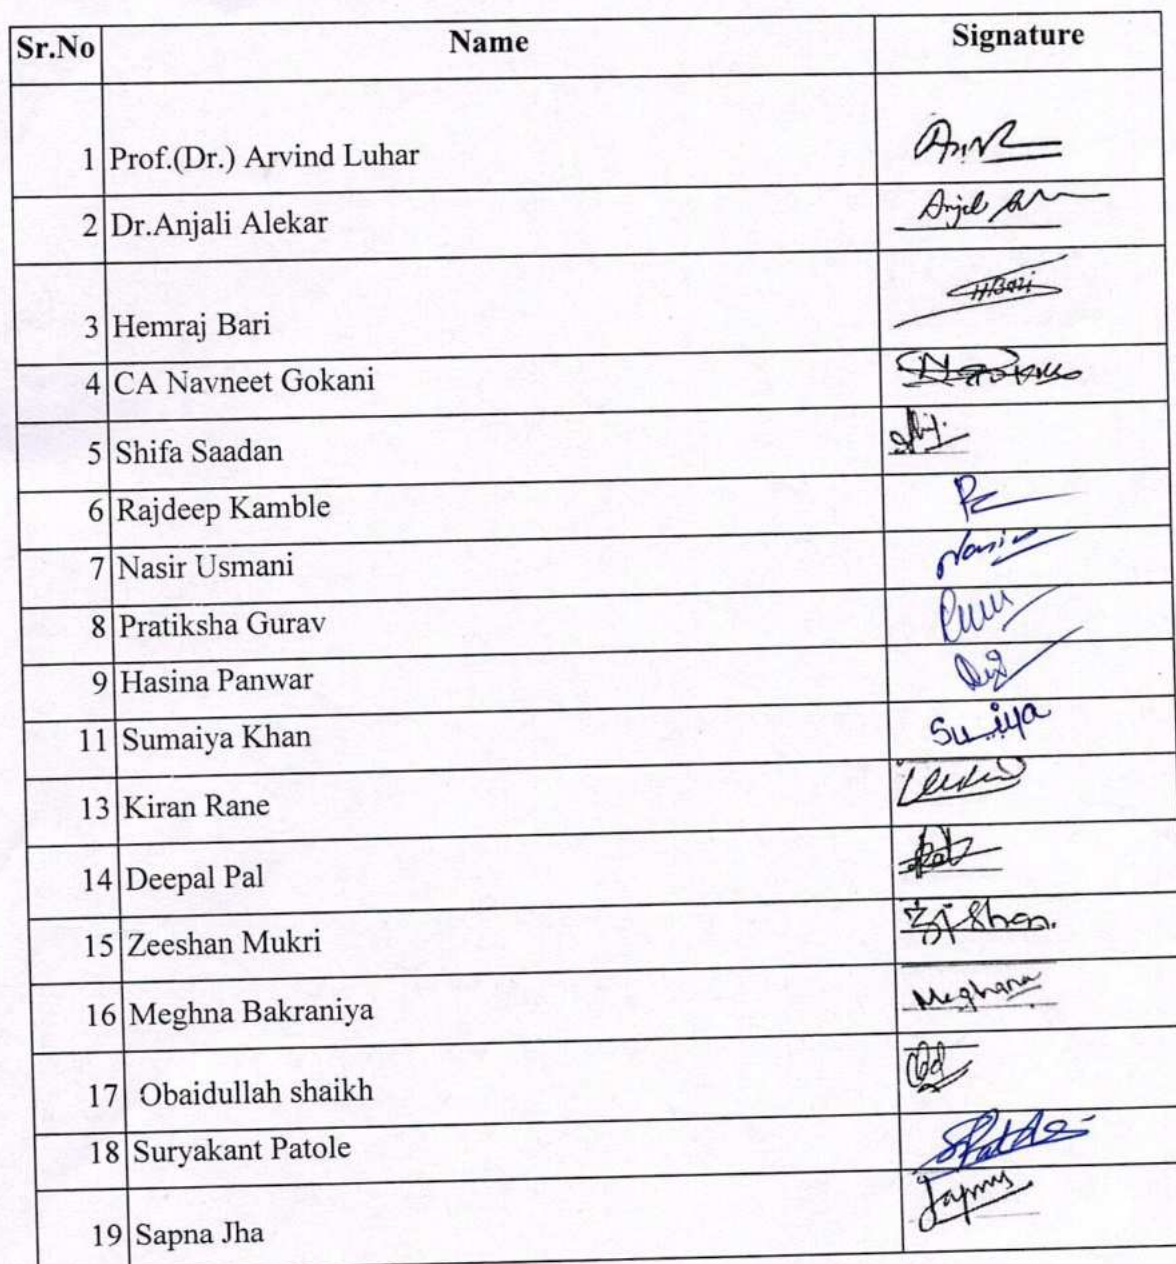 Sr.No Name Signature
1 Prof.(Dr.) Arvind Luhar
2 Dr.Anjali Alekar
3 Hemraj Bari HBari
4 CA Navneet Gokani
5 Shifa Saadan
6 Rajdeep Kamble
7 Nasir Usmani Nasir
8 Pratiksha Gurav
9 Hasina Panwar
11 Sumaiya Khan
13 Kiran Rane
14 Deepal Pal
15 Zeeshan Mukri
16 Meghna Bakraniya Meghana
17 Obaidullah shaikh
18 Suryakant Patole
19 Sapna Jha